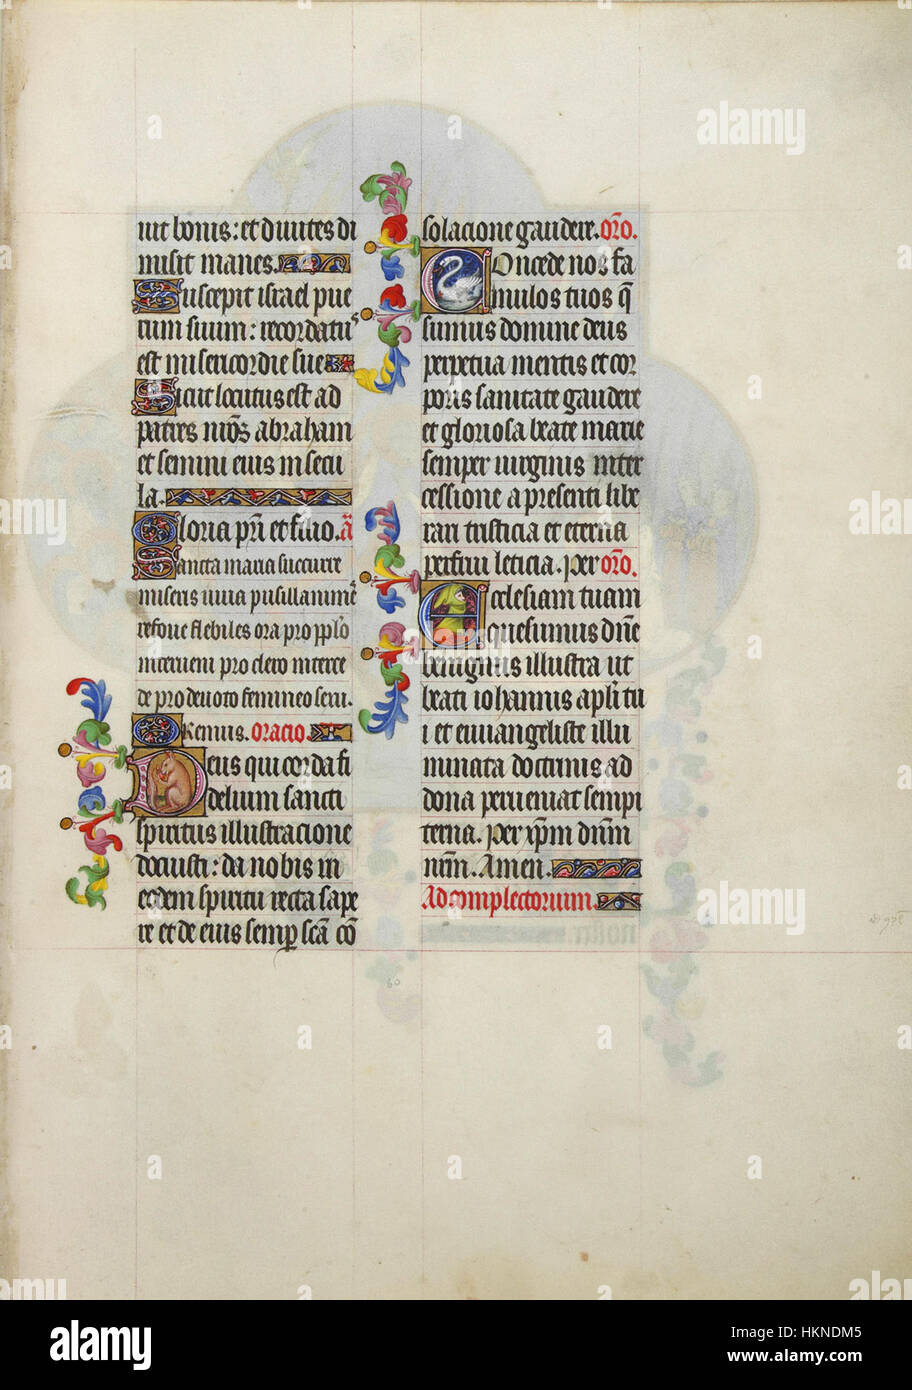 uit bonis: et divites di
misit inanes.
Suscepit israel pue
rum suum: recordatꝰ
est misericordie sue
Sicut locutus est ad
patres nr̄os abraham
et semini eius in secu
la.
Gloria pr̄i et filio. a
Sancta maria succurre
miseris iuva pusillanimes
refove flebiles ora pro pp̄lo
interveni pro clero interce
de pro devoto femineo sexu.
Oremus. Oracio.
Deus qui corda fi
delium sancti
spiritus illustracione
docuisti: da nobis in
eodem spiritu recta sape
re et de eius semp̱ scā cō
solacione gaudere. or̄o.
Concede nos fa
mulos tuos q̄
sumus domine deus
perpetua mentis et cor
poris sanitate gaudere
et gloriosa beate marie
semper virginis inter
cessione a presenti libe
rari tristicia et eterna
perfrui leticia. Per or̄o.
Ecclesiam tuam
quesumus dn̄e
benignus illustra ut
beati iohannis apl̄i tu
i et euuangeliste illu
minata doctrinis ad
dona perveniat sempi
terna. Per xp̄m dn̄m
nr̄m. Amen.
Ad complectorium.
60
alamy
a
a alamy stock photo
HKNDM5
www.alamy.com